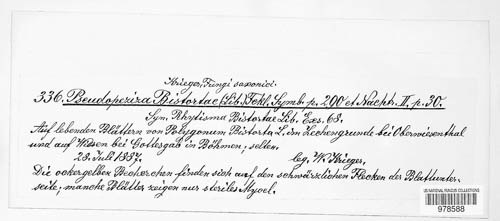 Krieger, Fungi saxonici.
336. Pseudopeziza Bistortae (Lib.) Fckl. Symb. p. 290 et Nachtr. II, p. 30.
Syn. Rhytisma Bistortae Lib. Exs. 68.
Auf lebenden Blättern von Polygonum Bistorta L. im Zechengrunde bei Oberwiesenthal
und auf Wiesen bei Gottesgab in Böhmen, selten.
23. Juli 1887. leg. W. Krieger.
Die ockergelben Becherchen finden sich auf den schwärzlichen Flecken der Blattunter-
seite; manche Blätter zeigen nur steriles Mycel.
US NATIONAL FUNGUS COLLECTIONS
978588